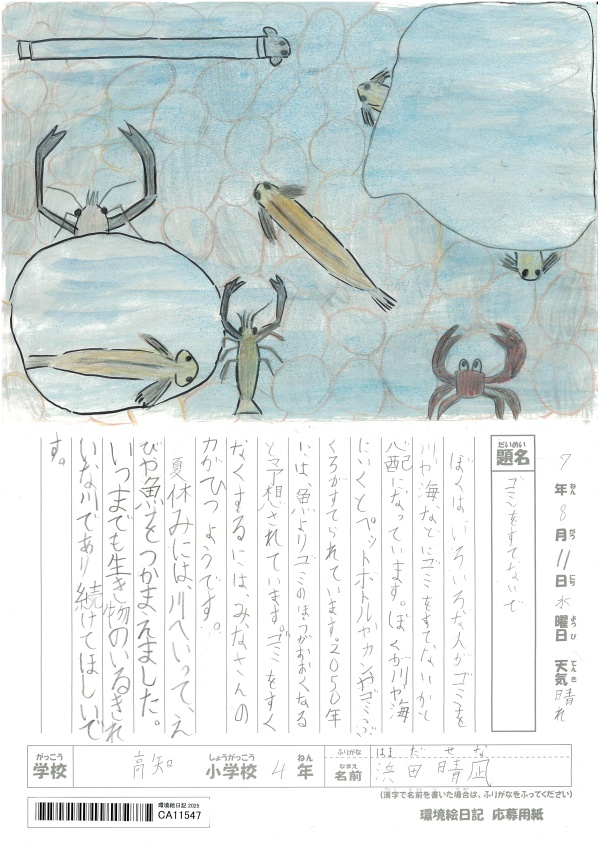 7年8月11日水曜日 天気晴れ
ねん がつ にち ようび てんき
だいめい
題名
ゴミをすてないで
ぼくは、いろいろな人がゴミを
川や海などにゴミをすてないかと
心配になっています。ぼくが川や海
にいくとペットボトルやカンやゴミぶ
くろがすてられています。2050年
には、魚よりゴミのほうがおおくなる
と予想されています。ゴミをすく
なくするには、みなさんの
力がひつようです。
夏休みには、川へいって、え
びや魚をつかまえました。
いつまでも生き物のいるきれ
いな川であり続けてほしいで
す。
がっこう
学校
高知
しょうがっこう
小学校
4
ねん
年
ふりがな
はまだ せな
なまえ
名前
浜田晴凪
(漢字で名前を書いた場合は、ふりがなをふってください)
環境絵日記 2025
CA11547
環境絵日記 応募用紙